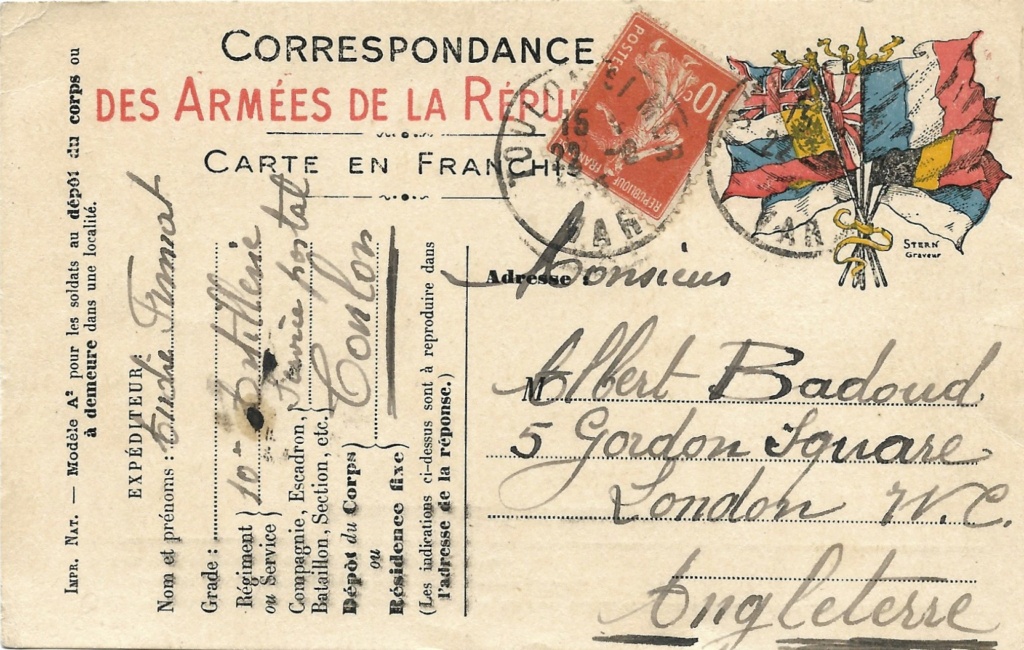 CORRESPONDANCE
DES ARMÉES DE LA RÉPU
CARTE EN FRANCHIS
POSTES
10c
REPUBLIQUE FRAN
TOULON
15
VAR
VAR
STERN
Graveur
Adresse :
Monsieur
M Albert Badoud
5 Gordon Square
London W.C.
Angleterre
IMPR. NAT. — Modèle A² pour les soldats au dépôt du corps ou
à demeure dans une localité.
EXPÉDITEUR :
Nom et prénoms :
Grade :
Régiment
ou Service } 10e Artillerie
Compagnie, Escadron,
Bataillon, Section, etc. } Service postal
Dépôt du Corps
ou
Résidence fixe } Toulon
(Les indications ci-dessus sont à reproduire dans
l'adresse de la réponse.)